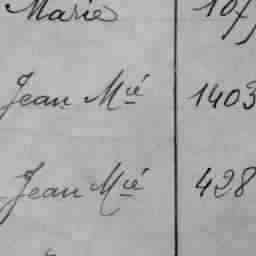 Marie 107
Jean M^ié 1403
Jean M^ié 428